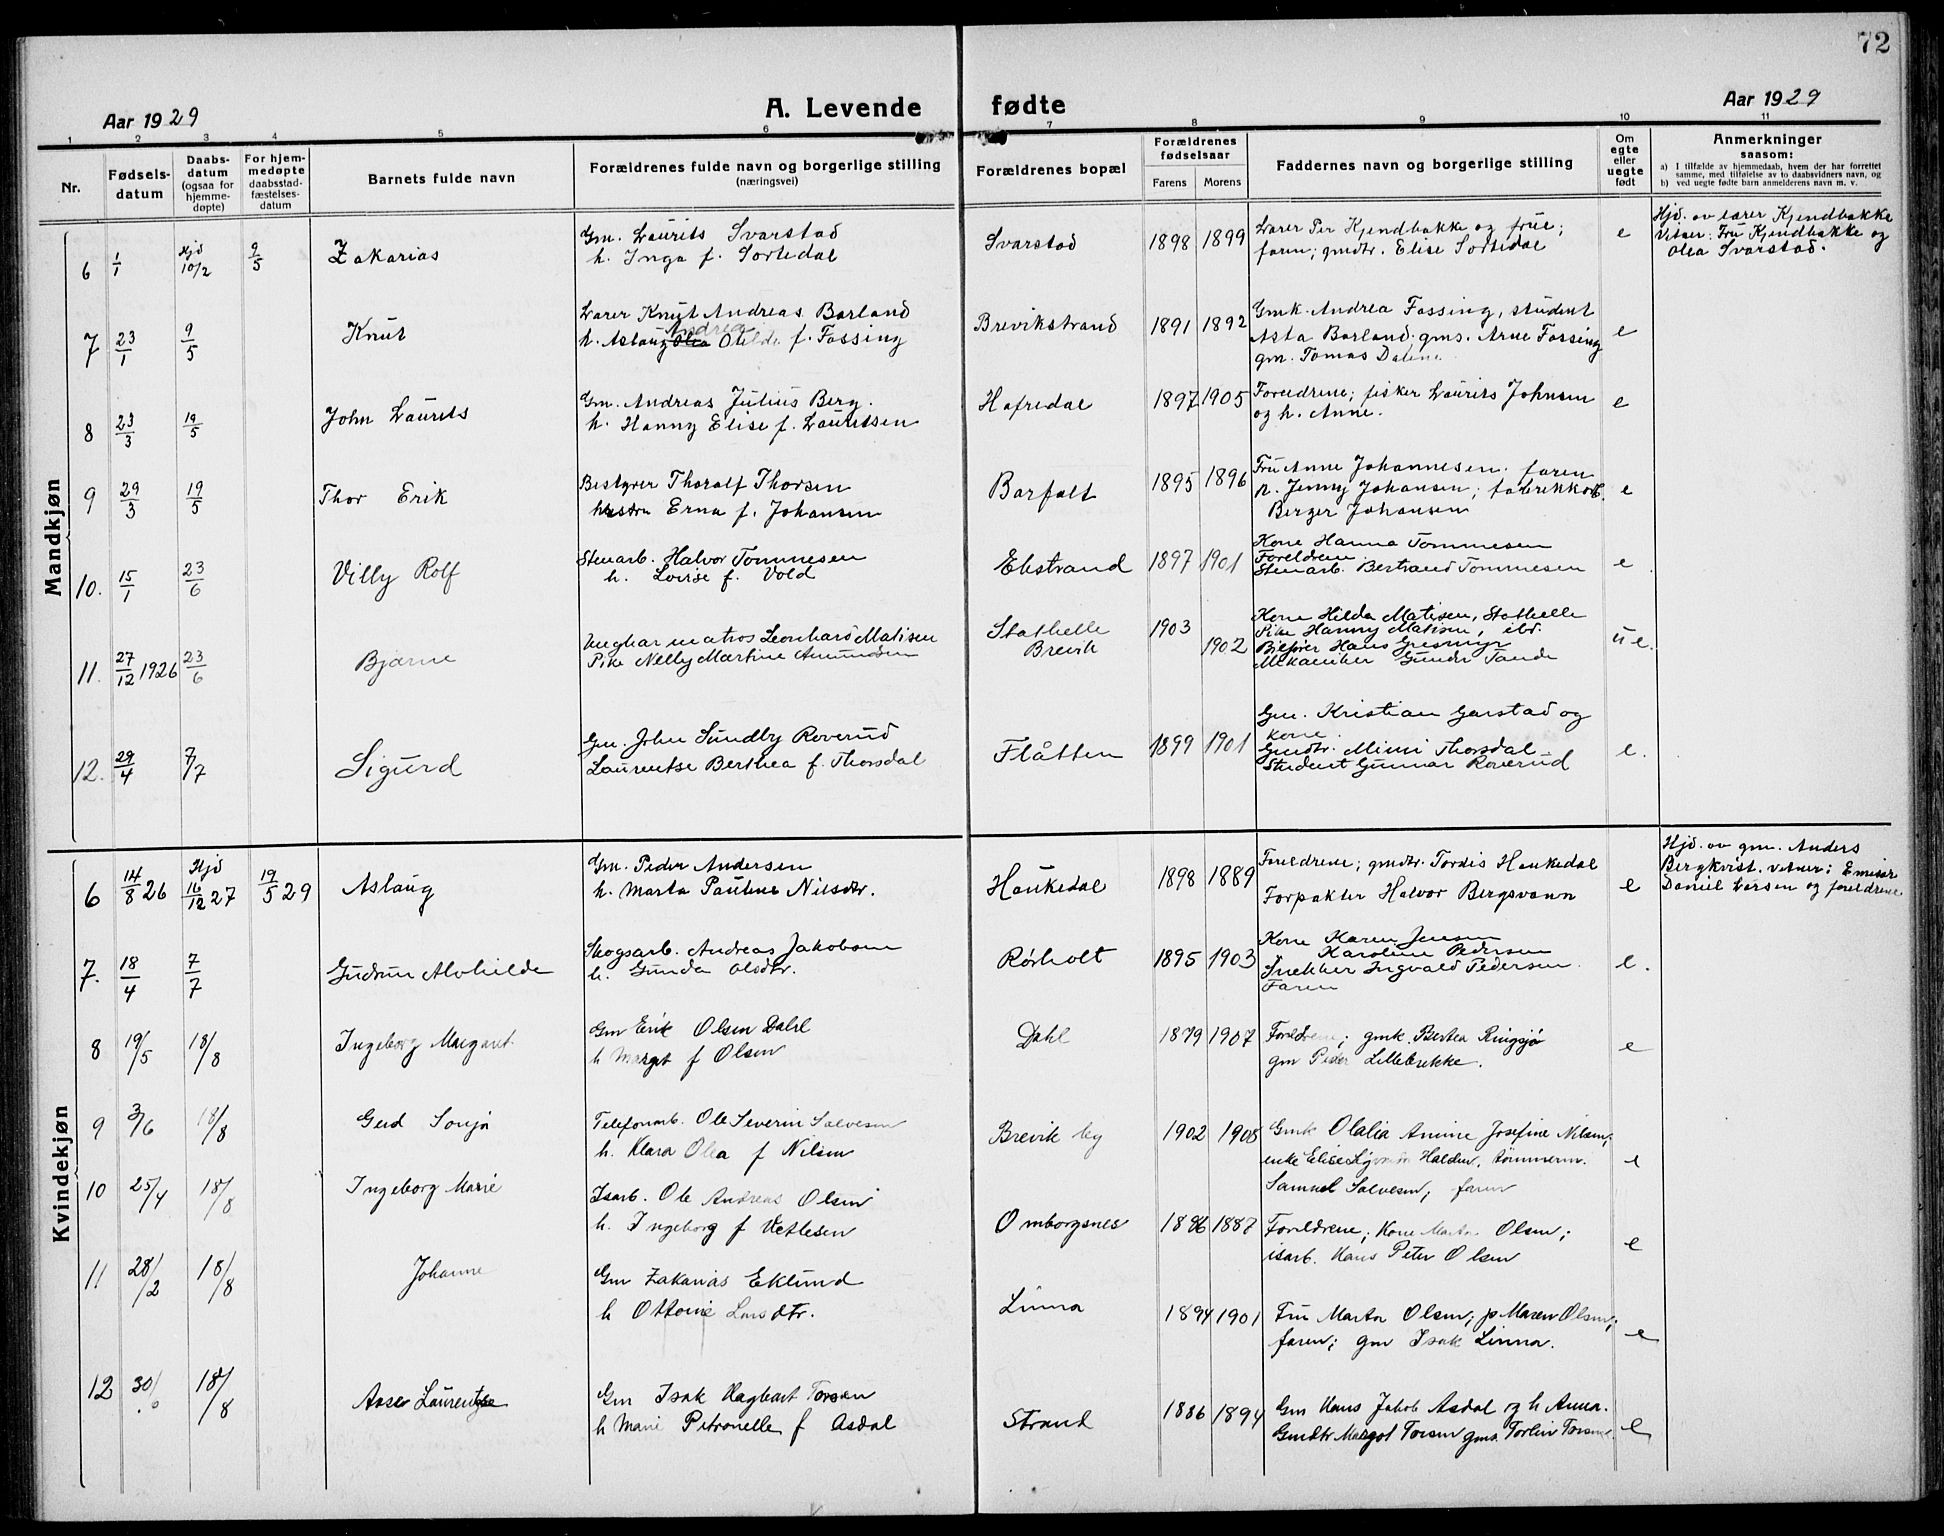 72
Aar 1929
A. Levende fødte
Aar 1929
1 2 3 4 5 6 7 8 9 10 11
Nr.
Fødsels-
datum
Daabs-
datum
(ogsaa for
hjemme-
døpte)
For hjem-
medøpte
daabsstad-
fæstelses-
datum
Barnets fulde navn
Forældrenes fulde navn og borgerlige stilling
(næringsvei)
Forældrenes bopæl
Forældrenes
fødselsaar
Farens Morens
Faddernes navn og borgerlige stilling
Om
egte
eller
uegte
født
Anmerkninger
saasom:
a) I tilfælde av hjemmedaab, hvem der har forrettet
samme, med tilføielse av to daabsvidners navn, og
b) ved uegte fødte barn anmelderens navn m. v.
Mandkjøn
6 1/1 Hjd 10/2 9/5 Zakarias
Gm. Laurits Svarstad
h. Inga f. Sortedal
Svarstad 1898 1899
Lærer Per Kjendbakke og frue;
faren; gmdtr. Elise Sortedal
e
Hjd. av lærer Kjendbakke
Vitner: Fru Kjendbakke og
Olea Svarstad.
7 23/1 9/5 Knut
Lærer Knut Andreas Borland
Andrea
h. Aslaug Olea Otilde f. Fossing
Brevikstrand 1891 1892
Gmk. Andrea Fossing, student
Asta Borland. gms. Arne Fossing
gm. Tomas Dalene
e
8 23/3 19/5 John Laurits
Gm. Andreas Julius Berg.
h. Hanny Elise f. Lauritsen
Hafredal 1897 1905
Foreldrene; fisker Laurits Johnsen
og h. Anne.
e
9 29/3 19/5 Thor Erik
Bestyrer Thoralf Thorsen
hustru Erna f. Johansen
Barfalt 1895 1896
Fru Anne Johannesen. faren
p. Jenny Johansen; fabrikkarb.
Berger Johansen
e
10. 15/1 23/6 Villy Rolf
Stenarb. Halvor Tommesen
h. Lovise f. Vold
Ekstrand 1897 1901
Kone Hanna Tommesen
Foreldrene
Stenarb. Bertrand Tommesen
e
11. 27/12 1926 23/6 Bjarne
Ungkar matros Leonhard Matisen
Pike Nelly Martine Amundsen
Stathelle
Brevik
1903
1902
Kone Hilda Matisen, Stathelle
Pike Hanny Matisen, ibd.
Hans
Gunder Tande
ue.
12. 29/4 7/7 Sigurd
Gm. John Sundby Roverud
Laurentse Berthea f. Thorsdal
Flåtten 1899 1901
Gm. Kristian Garstad og
kone.
Gmdtr. Mimi Thorsdal
Student Gunnar Roverud
e.
Kvindekjøn
6 14/8 26 Hjd 16/12 27 19/5 29 Aslaug
Gm. Peder Andersen
h. Marta Pauline Nilsdtr.
Haukedal 1898 1889
Foreldrene; gmdtr. Tordis Haukedal
Forpakter Halvor Bergsvann
e
Hjd. av gm. Anders
Bergkvist. vitner: Emisær
Daniel Larsen og foreldrene
7. 18/4 7/7 Gudrun Alvhilde
Skogsarb. Andreas Jakobsen
h. Gunda Olsdtr.
Rörholt 1895 1903
Kone Karen Jensen
" Karoline Pedersen
Snekker Ingvald Pedersen.
Faren
e.
8 19/5 18/8 Ingeborg Margaret.
Gm Erik Olsen Dahl
h Margit f Olsen
Dahl 1879 1907
Foreldrene; gmk. Bertea Ringsjø
gm Peder Lillebrekke.
e
9 3/6 18/8 Gerd Sonja
Telefonarb. Ole Severin Salvesen
h. Klara Olea f Nilsen
Brevik by 1902 1905
Gmk Olalia Amine Josefine Nilsen;
enke Elise Halden, tømmerm.
Samuel Salvesen; faren
e
10 25/4 18/8 Ingeborg Marie
Isarb. Ole Andreas Olsen
h. Ingeborg f Vetlesen
Omborgsnes 1886 1887
Foreldrene; Kone Marta Olsen;
isarb. Hans Peter Olsen
e
11 28/2 18/8 Johanne
Gm Zakarias Eklund
h Ottonie Larsdtr.
Linna 1894 1901
Fru Marta Olsen; p Maren Olsen;
faren; gm Isak Linna.
e
12 30/6 18/8 Aase Laurentze
Gm Isak Hagbart Torsen
h Marie Petronelle f Asdal
Strand 1886 1894
Gm Hans Jakob Asdal og h Anna.
Gmdtr Margot Torsen gms. Torlin Torsen
e